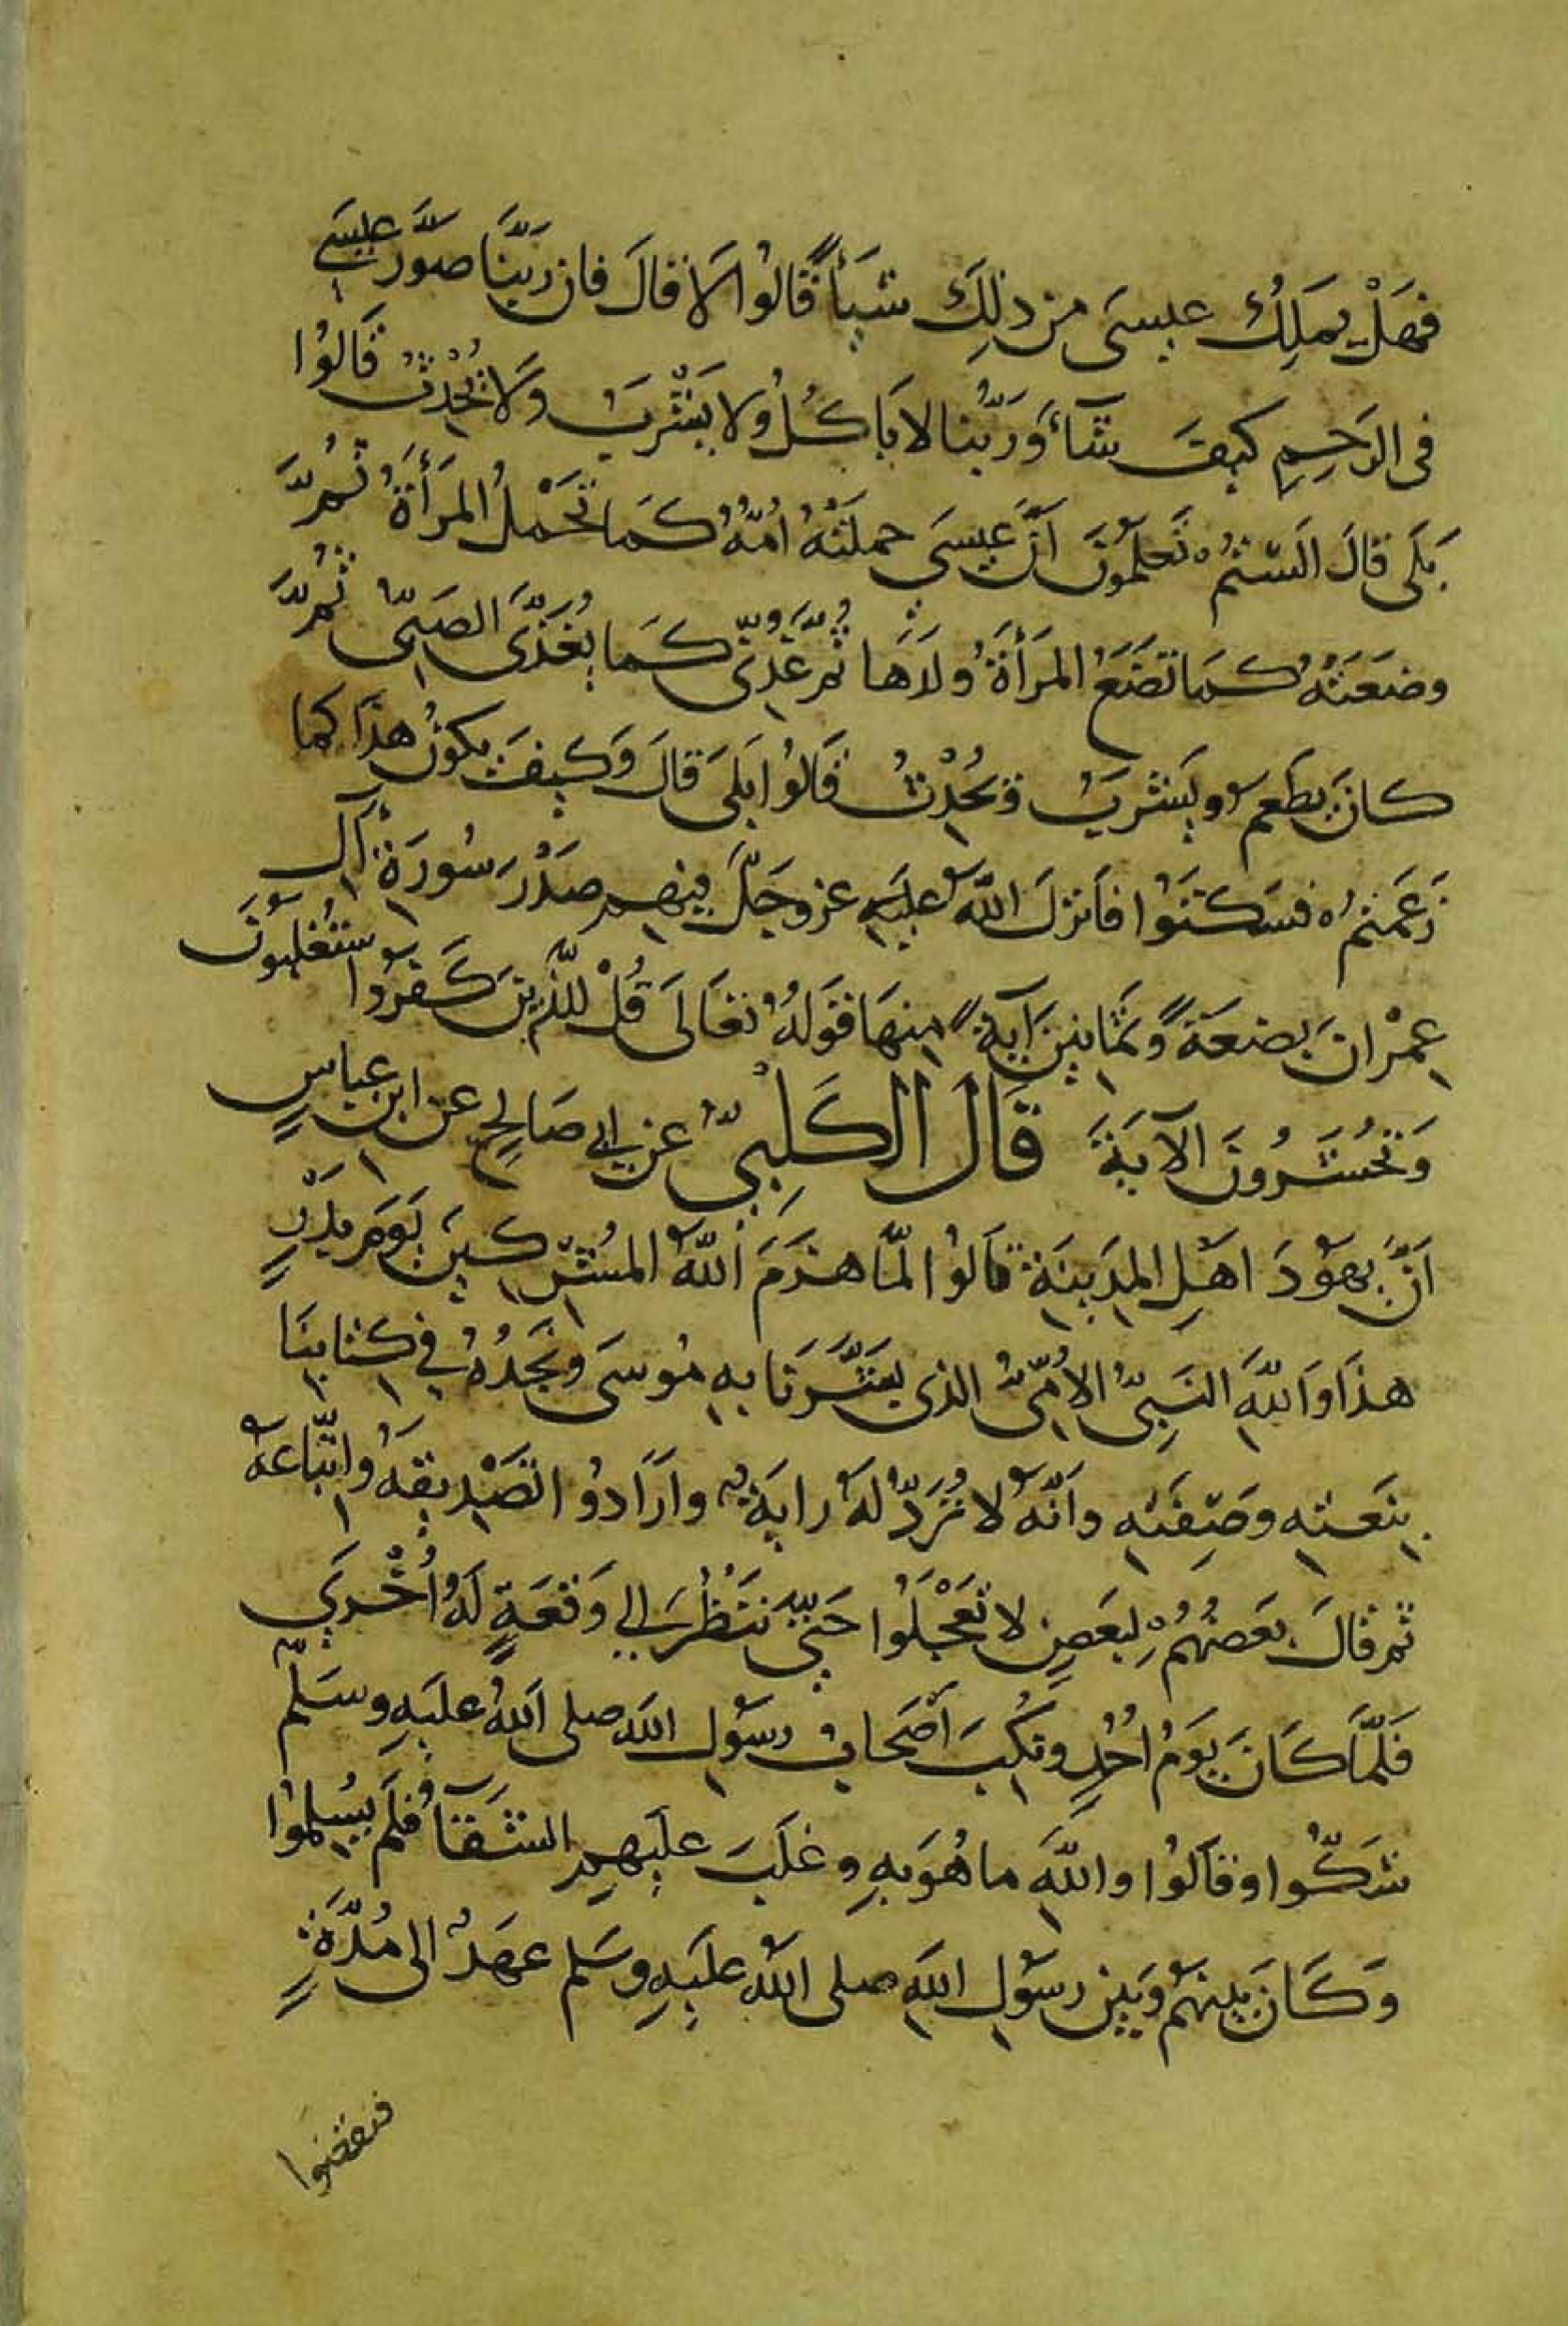 فهَلْ يملِكُ عيسَى من ذلِكَ شيأً قالوُا لَا قالَ فان ربَّنَا صوَّرَ عيسَى
فى الرَحِمِ كيفَ شَآءَ وَرَبُّنا لا يَاكُلُ ولا يَشْرَبُ وَلَا يُحْدِثُ قَالوُا
بَلَى قالَ الَستمُ تَعلَمُونَ اَنَّ عِيسَى حملَتْهُ اُمُّهُ كَمَا تَحْمِلُ المرَأَةُ ثُمَّ
وضعَتهُ كمَا تضَعُ المَرأَةُ ولَدَهَا ثُمَّ غُذِّىَ كمَا يُغَذَّى الصَبِىُّ ثُمَّ
كانَ يطعَم ويَشرَبُ وَيُحْدِثُ قالوُا بَلىَ قالَ وَكيفَ يكونُ هذَا كما
زَعَمتمُ فسَكتَوُا فاَنزلَ اللّهُ عليَهِ عزوجَلَّ فيِهم صَدْرَ سُورَةِ آلِ
عِمْرانَ بِضعَةً وَثمَانِينَ آيَةً مِنهَا قوَلهُ تعَالَى قُلْ للَّذِينَ كَفَرُوا ستُغلَبوُنَ
وَتُحْشَرُونَ الآيَةَ قَالَ الكَلبِىُّ عَن ابِى صَالحٍ عن ابنِ عبّاسٍ
اَنَّ يهَوُدَ اهَلِ المدَيِنَةِ قالوُا لمَّا هزَمَ اللّهُ المُشرِكينَ يَومَ بَدْرٍ
هذَا وَاللّهِ النَبِىُّ الأُمِّىُّ الذى بَشَّرَنَا بِهِ مُوسَى وَنَجَدُهُ فِى كِتَابِنَا
بِنَعتِهِ وصَفِتَهِ وَانَّهُ لا تُرَدُّ لَهُ رايَةٌ وارَادوُا تصَدِيقَهُ وَاتّباعَهُ
ثم قالَ بعَضهُمُ لبَعضٍ لا تَعْجَلَوُا حَتىَّ نَنْظُرَ الِى وَقعَةٍ لَهُ اُخْرَى
فَلمَّا كَانَ يَومُ اُحُدٍ ونُكِبَ اَصحَابُ رسوُلِ اللهِ صلى اللهُ عليَهِ وسَلَّم
شَكُّوا وقالَوُا واللّهِ ما هُوَ بِهِ وغَلَبَ علَيهِمِ الشَقَآءُ فَلَم يُسْلِموُا
وَكَانَ بيَنهَم وبيَن رسوُلِ اللهِ صلى اللهُ علَيَهِ وسَلم عهَدٌ الى مُدَّةٍ
فنقضوا